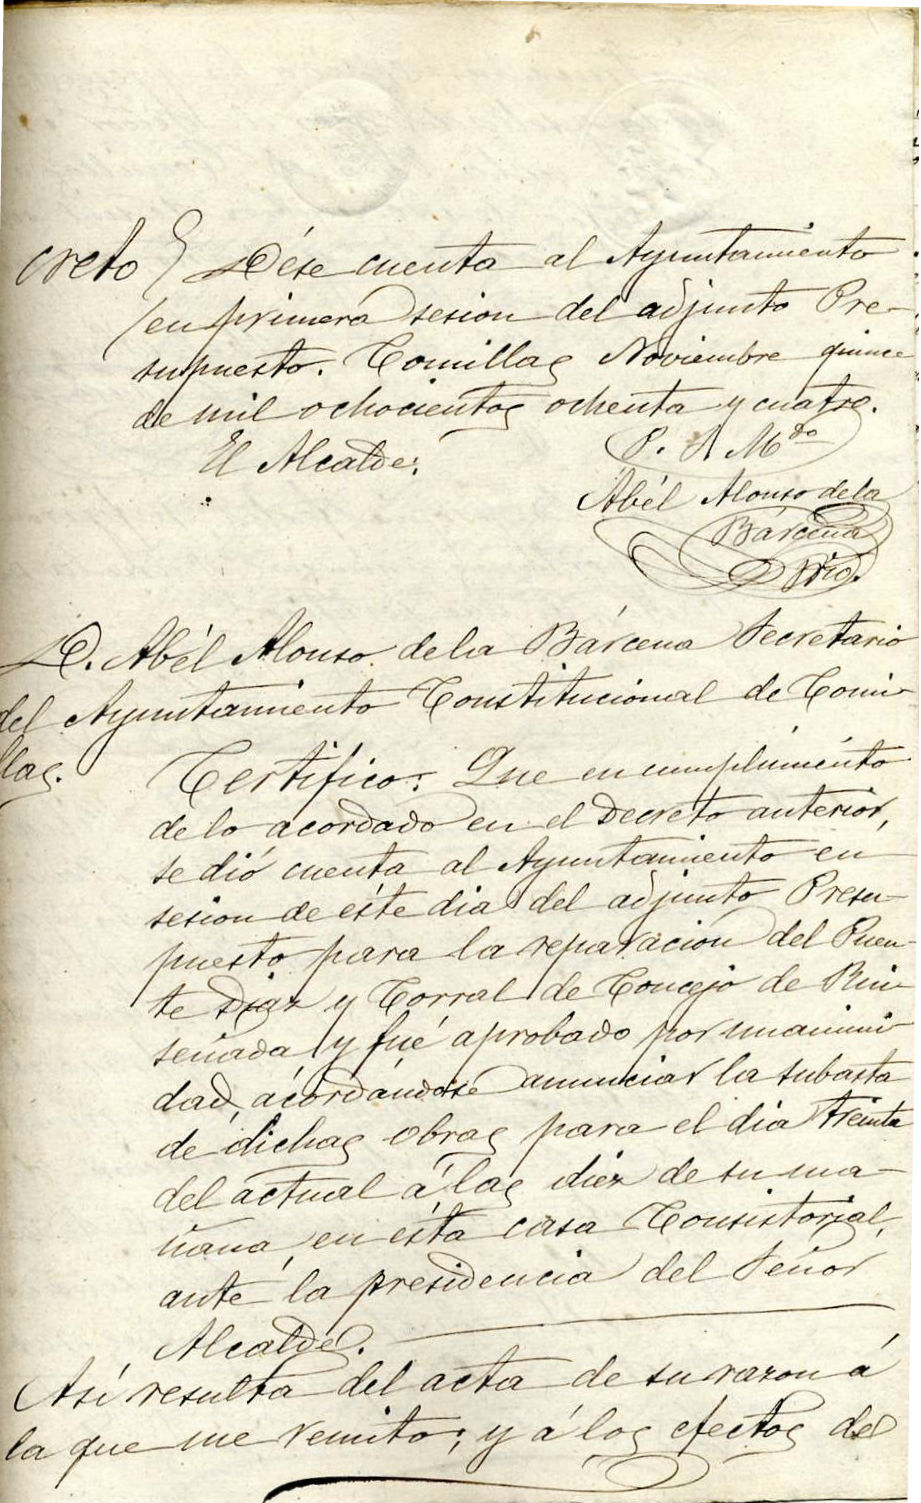 creto } Dése cuenta al Ayuntamiento
en primera sesion del adjunto Pre-
supuesto. Comillas Noviembre quince
de mil ochocientos ochenta y cuatro.
El Alcalde:
P. S. Mdo
Abél Alonso de la
Bárcena
Srio.
D. Abél Alonso de la Bárcena Secretario
del Ayuntamiento Constitucional de Comi-
llas.
Certifico: Que en cumplimiento
de lo acordado en el Decreto anterior,
se dió cuenta al Ayuntamiento en
sesion de éste dia del adjunto Presu-
puesto para la reparacion del Puen-
te Diaz y Corral de Concejo de Rui-
señada y fué aprobado por unanimi-
dad, acordándose anunciar la subasta
de dichas obras para el dia treinta
del actual á las diez de su ma-
ñana, en ésta casa Consistorial,
ante la presidencia del Señor
Alcalde.
Así resulta del acta de su razon á
la que me remito; y á los efectos de